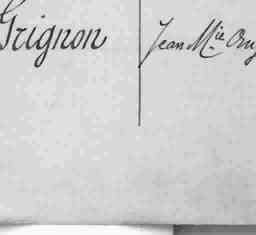 Grignon
Jean M.ie